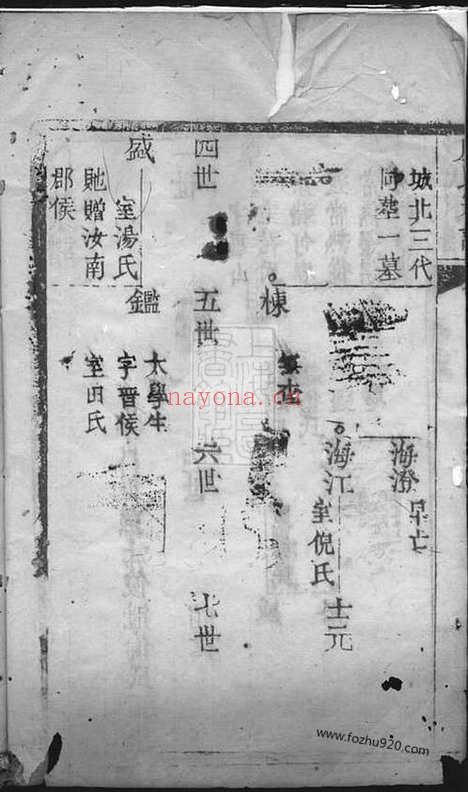 城北三代
同塟一墓
海澄
早亡
海江
室倪氏
士元
棟
四世
五世
六世
七世
盛
室湯氏
貤贈汝南
郡侯
鑑
太學生
字晋侯
室田氏
nayona.cn
www.fozhu920.com